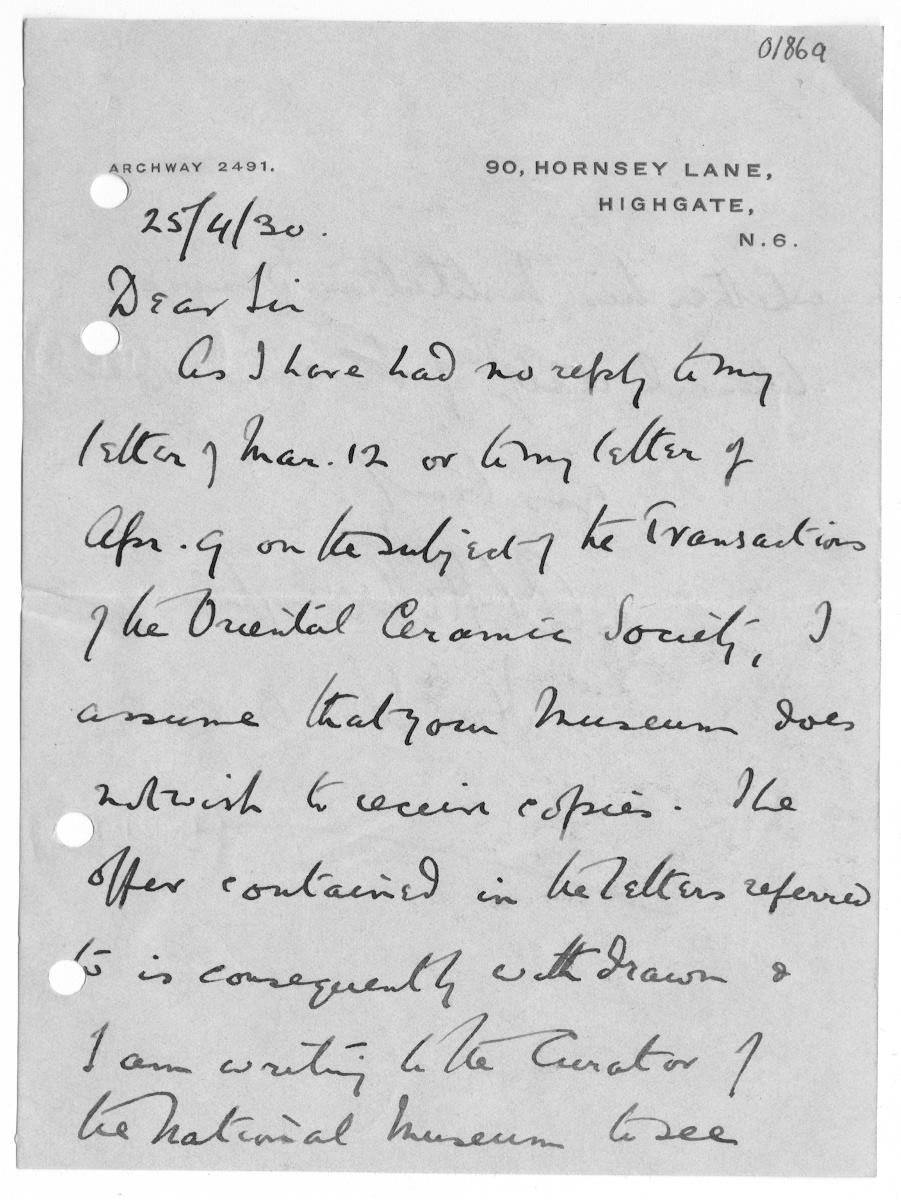 01869
ARCHWAY 2491.
90, HORNSEY LANE,
HIGHGATE,
N.6.
25/4/30.
Dear Sir
As I have had no reply to my
letter of Mar. 12 or to my letter of
Apr. 9 on the subject of the Transactions
of the Oriental Ceramic Society, I
assume that your Museum does
not wish to receive copies. The
offer contained in the letters referred
to is consequently withdrawn &
I am writing to the Curator of
the National Museum to see